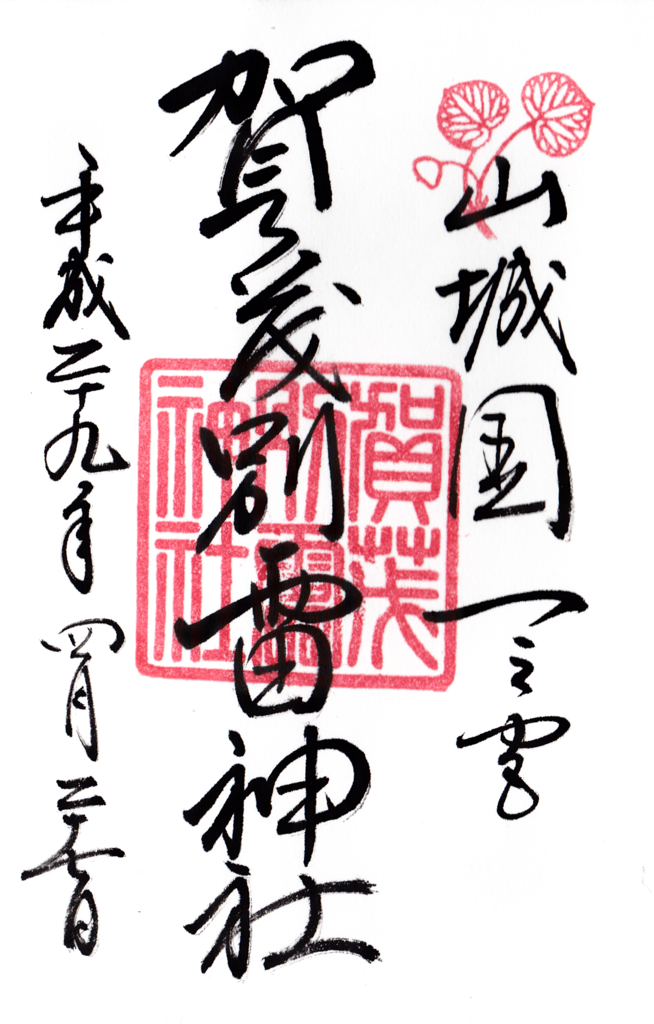 山城国一之宮
賀茂別雷神社
平成二十九年四月二十七日
賀茂
別雷
神社